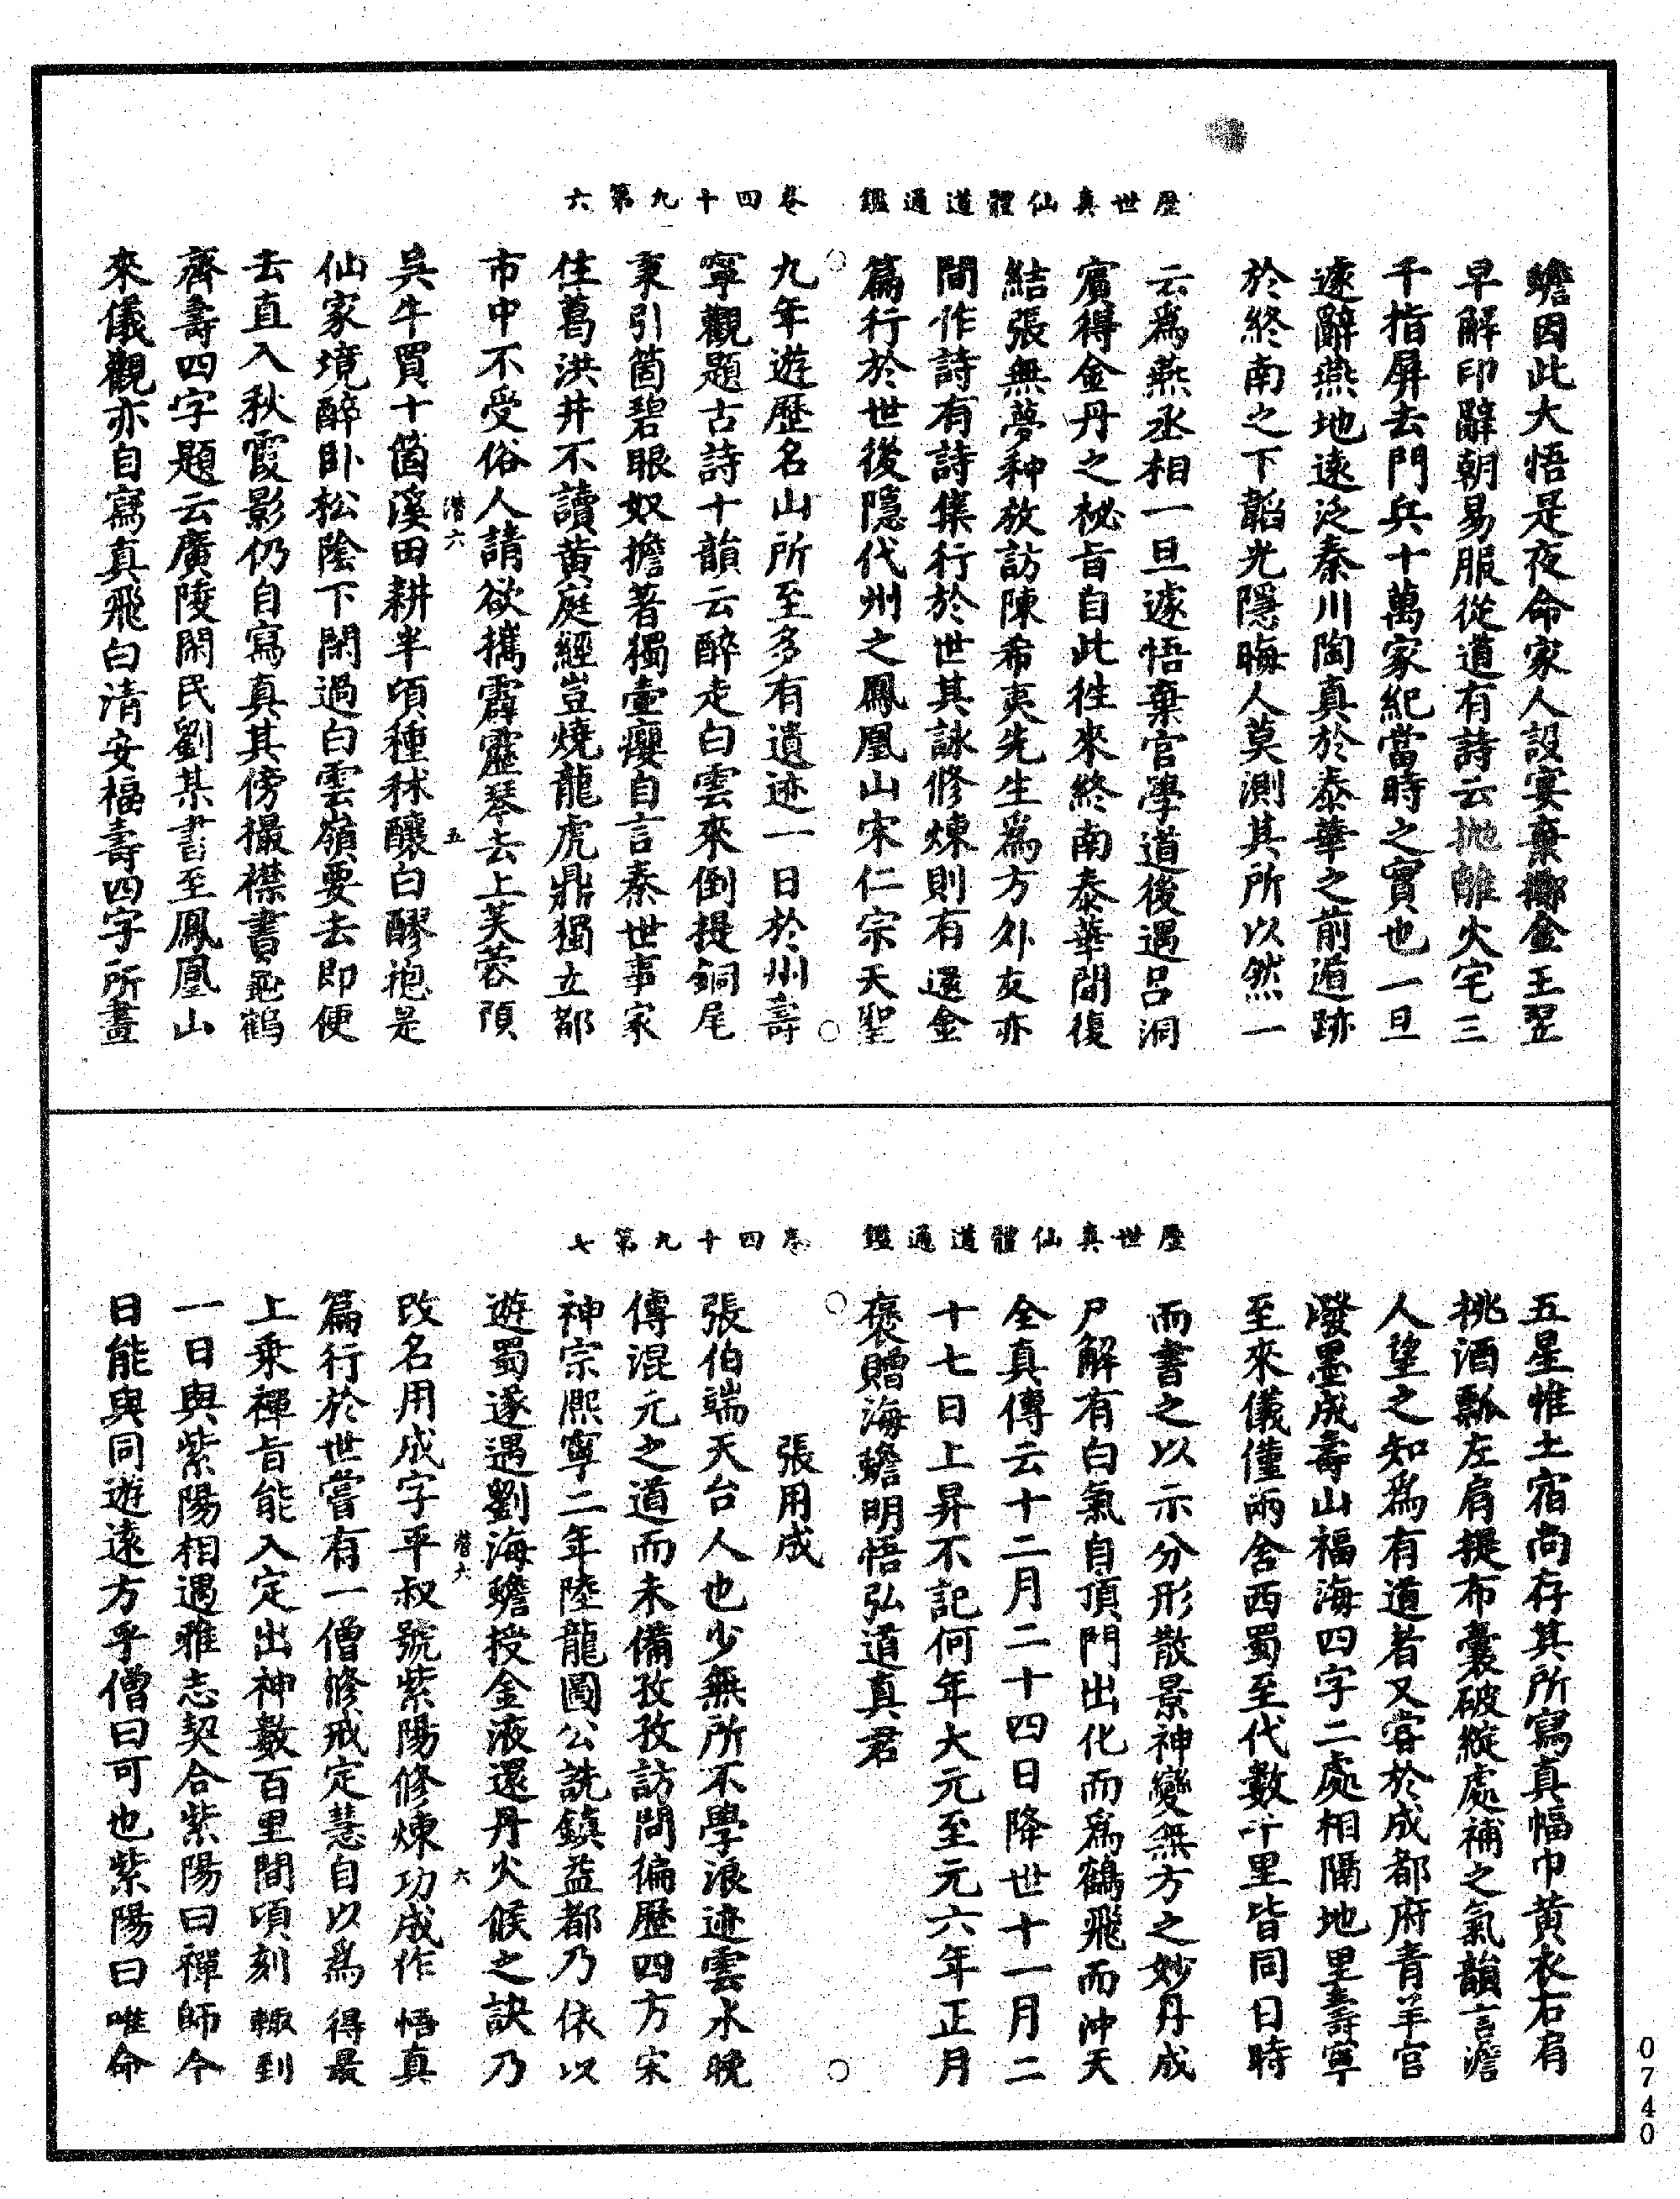 歷世真仙體道通鑑　卷四十九第六
蟾因此大悟是夜命家人設宴棄擲金玉翌
早解印辭朝易服從道有詩云抛離火宅三
千指屏去門兵十萬家紀當時之實也一旦
遂辭燕地遠泛秦川陶真於泰華之前遁跡
於終南之下韜光隱晦人莫測其所以然一
云為燕丞相一旦遽悟棄官學道後遇呂洞
賓得金丹之祕旨自此往來終南泰華間復
結張無夢种放訪陳希夷先生為方外友亦
間作詩有詩集行於世其詠修煉則有還金
篇行於世後隱代州之鳳凰山宋仁宗天聖
九年遊歷名山所至多有遺迹一日於州壽
寧觀題古詩十韻云醉走白雲來倒提銅尾
秉引箇碧眼奴擔著獨壺癭自言秦世事家
住葛洪井不讀黃庭經豈燒龍虎鼎獨立都
市中不受俗人請欲攜霹靂琴去上芙蓉頂
吳牛買十箇溪田耕半頃種秫釀白醪抱是
仙家境醉卧松陰下閑過白雲嶺要去即便
去直入秋霞影仍自寫真其傍撮襟書龜鶴
齊壽四字題云廣陵閑民劉某書至鳳凰山
來儀觀亦自寫真飛白清安福壽四字所畫
潛六　五
歷世真仙體道通鑑　卷四十九第七
五星惟土宿尚存其所寫真幅巾黃衣右肩
挑酒瓢左肩提布囊破綻處補之氣韻言澹
人望之知為有道者又客於成都府青羊宮
潑墨成壽山福海四字二處相隔地里壽寧
至來儀僅兩舍西蜀至代數千里皆同日時
而書之以示分形散景神變無方之妙丹成
尸解有白氣自頂門出化而為鶴飛而沖天
全真傳云十二月二十四日降世十一月二
十七日上昇不記何年大元至元六年正月
褒贈海蟾明悟弘道真君
張用成
張伯端天台人也少無所不學浪迹雲水晚
傳混元之道而未備孜孜訪問徧歷四方宋
神宗熙寧二年陸龍圖公詵鎮益都乃依以
遊蜀遂遇劉海蟾授金液還丹火候之訣乃
改名用成字平叔號紫陽修煉功成作悟真
篇行於世嘗有一僧修戒定慧自以為得最
上乘禪旨能入定出神數百里間頃刻輒到
一日與紫陽相遇雅志契合紫陽曰禪師今
日能與同遊遠方乎僧曰可也紫陽曰唯命
潛六　六
0740